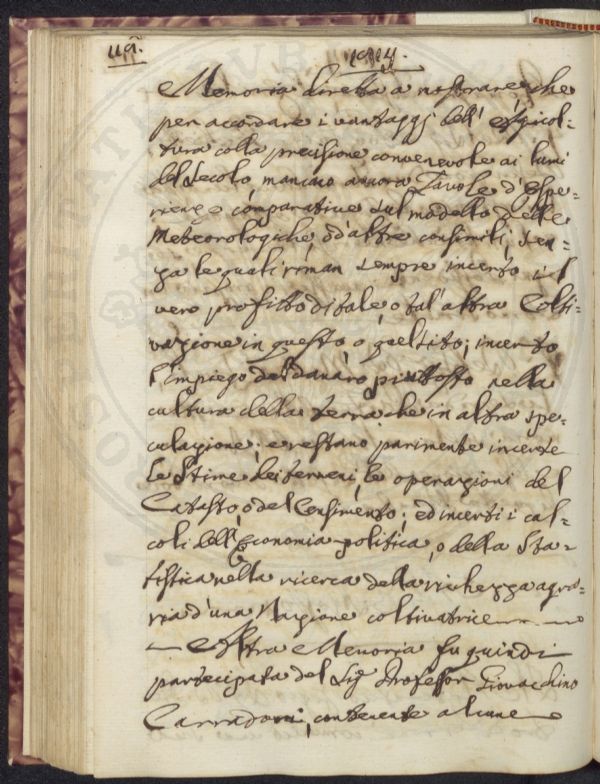 1814.
Memoria diretta a mostrare che
per accordare i vantaggj dell' Agricol=
tura colla precisione convenevole ai lumi
del Secolo, mancano ancora Tavole d'Espe=
rienze comparative sul modello delle
Meteorologiche, od'altre consimili, sen=
za le quali riman sempre incerto il
vero profitto di tale, o tal'altra Colti=
vazione in questo o quel sito; incerto
l'impiego del danaro piuttosto nella
cultura della terra che in altra spe=
culazione; e restano parimente incerte
le Stime dei terreni, le operazioni del
Catasto, o del Censimento; ed incerti i cal=
coli dell'Economia politica, o della Sta=
tistica nella ricerca della richezza agra=
ria d'una Nazione coltivatrice
Altra Memoria fu quindi
partecipata del Sig Professor Giovacchino
Carradori, contenente alcune